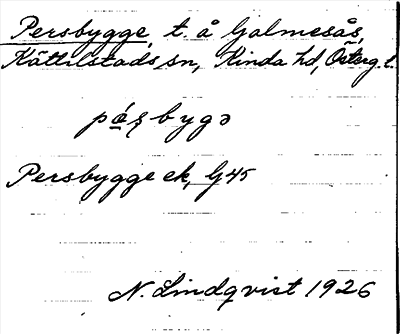 Persbygge, t. å Galmesås,
Kättilstads sn, Kinda hd, Österg. l.
Persbygge ek, G45
N. Lindqvist 1926